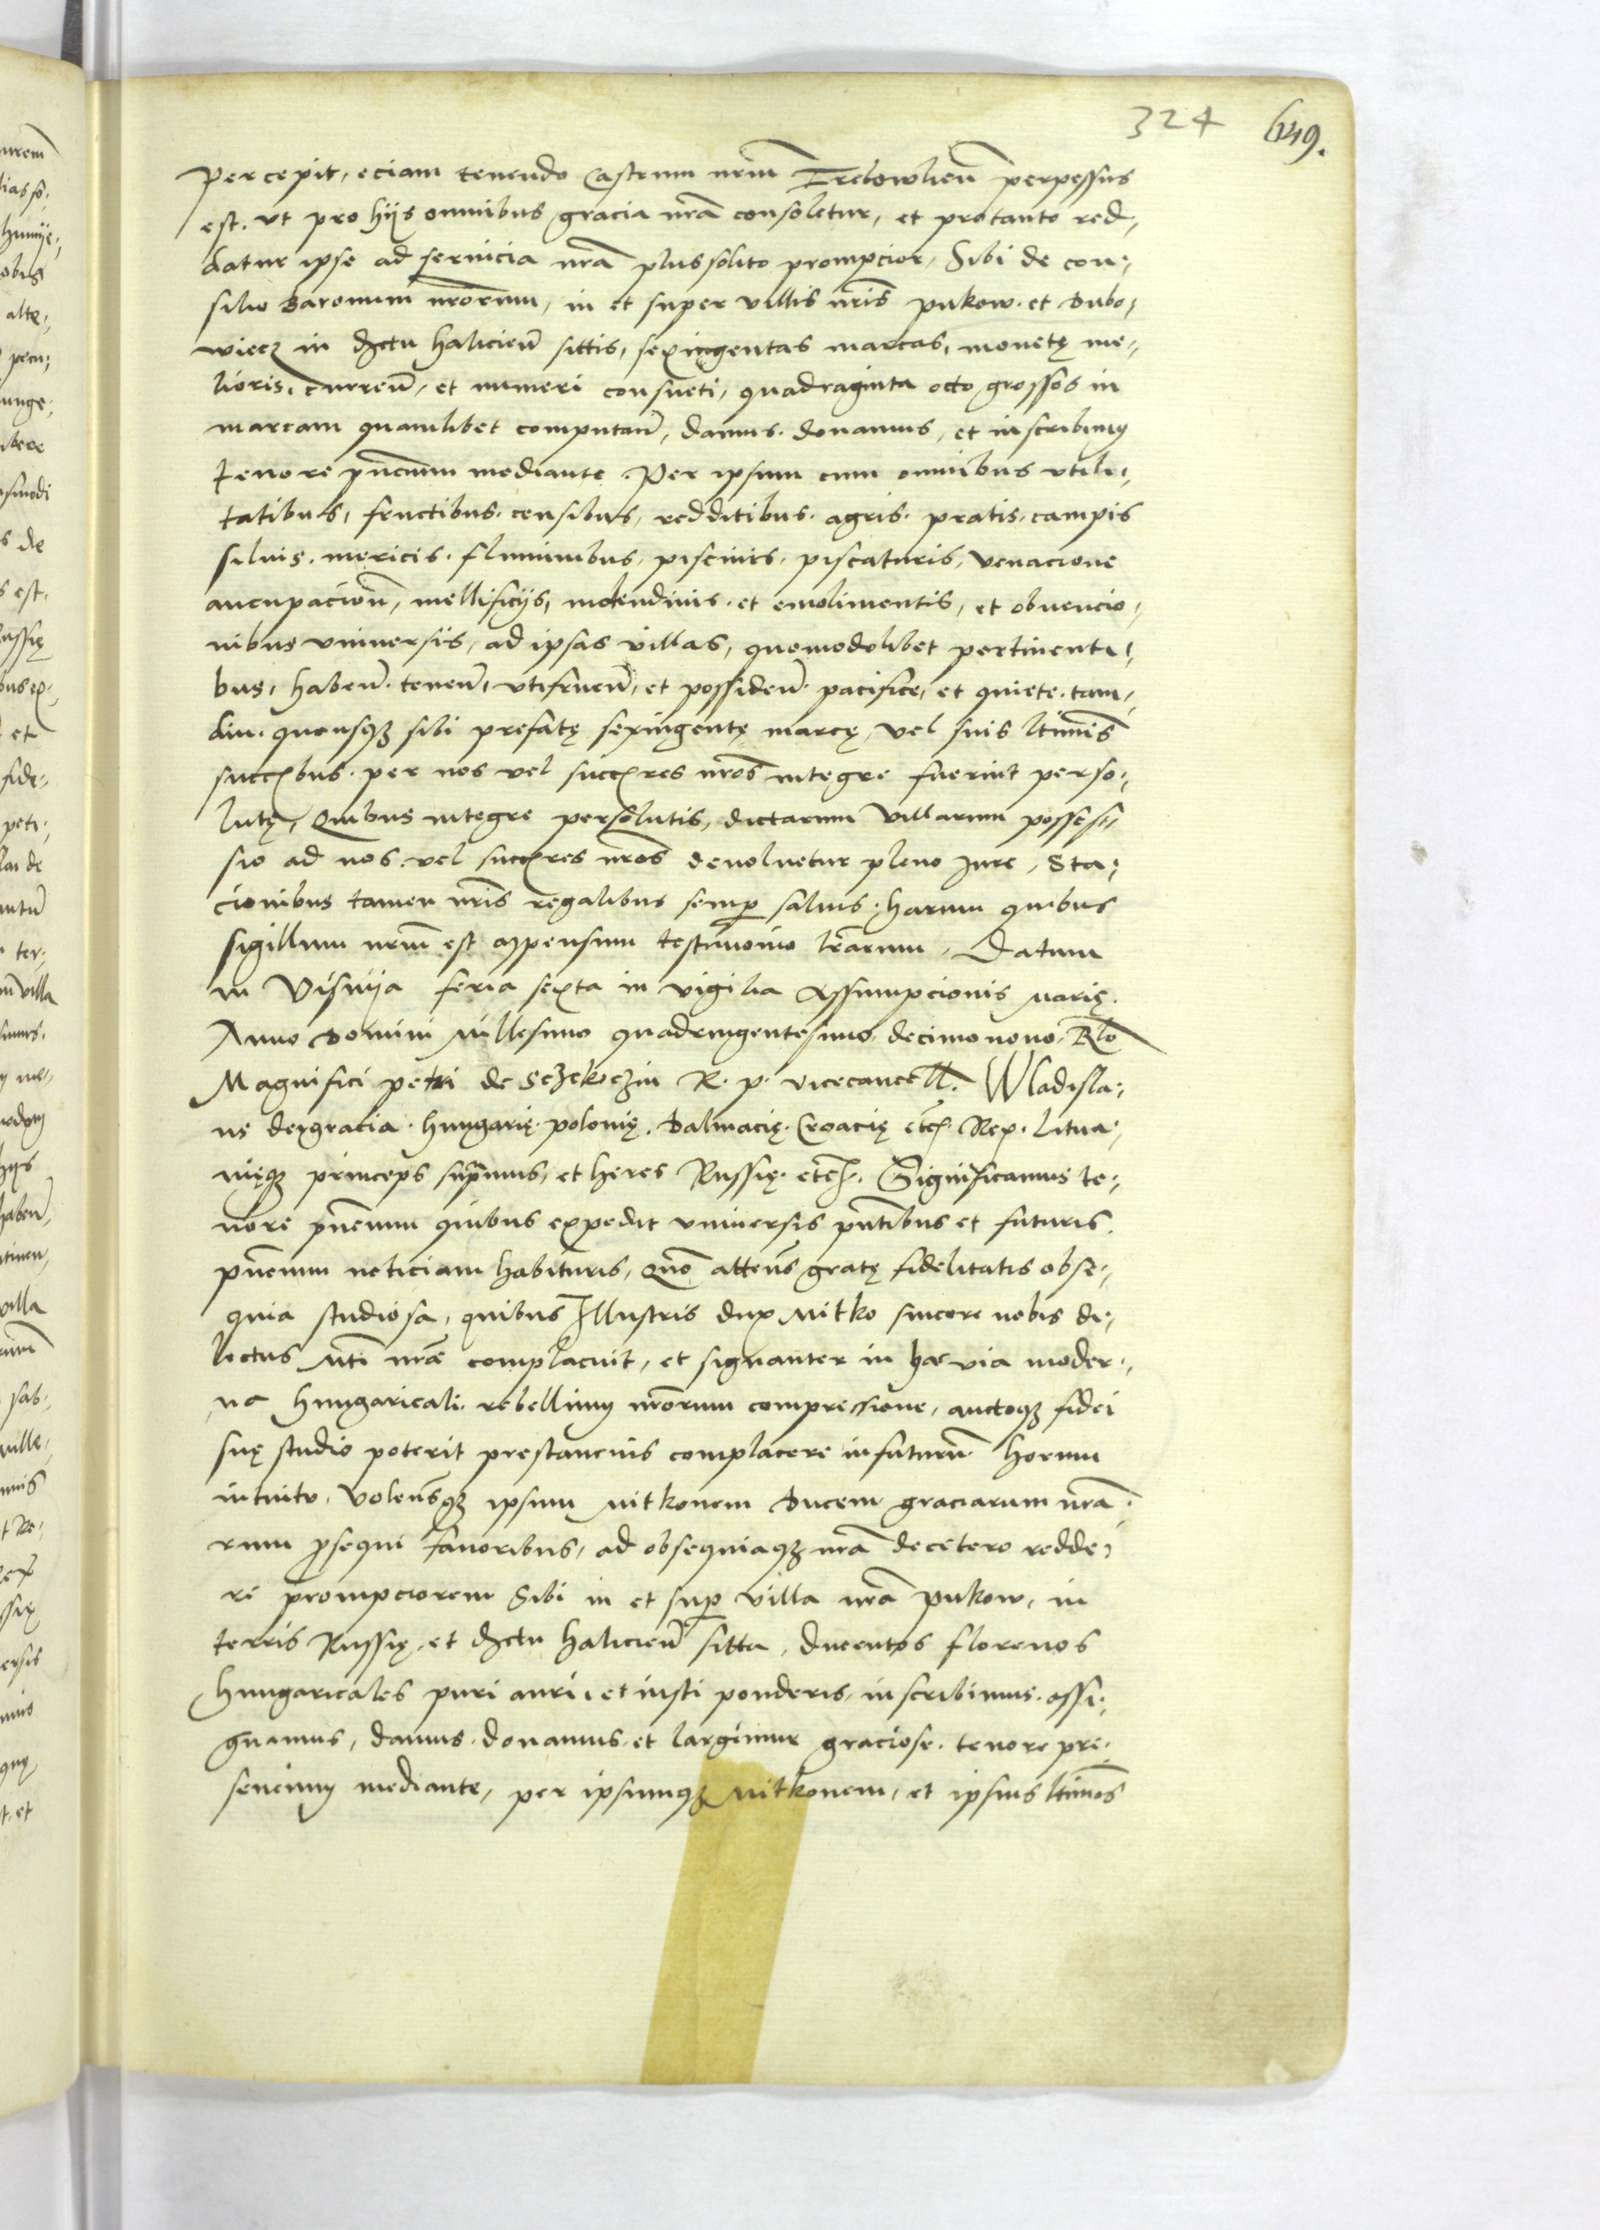 324 649.
percepit, eciam tenendo Castrum nrm̄ Trebowlien̄ perpessus
est. vt pro hijs omnibus gracia nrā consoletur, et protanto red-
datur ipse ad seruicia nrā plus solito prompcior, Sibi de con-
silio Baronum nrōrum, in et super villis nrīs pukow. et Dubo-
wiecz in dꝫctu halicien̄ sittis, sexingentas marcas, monetę me-
lioris, curren̄, et numeri consueti, quadraginta octo grossos in
marcam quamlibet computan̄, damus. donamus, et inscribimꝯ
tenore pn̄cium mediante. Per ipsum cum omnibus vtili-
tatibus, fructibus. censibus, redditibus. agris. pratis. campis
siluis. mericis. fluminibus, piscinis. piscaturis, venacione
aucupacion̄, mellificijs, molendinis. et emolimentis, et obuencio-
nibus vniuersis, ad ipsas villas, quomodolibet pertinenti-
bus, haben̄. tenen̄, vtifruen̄, et possiden̄. pacifice, et quiete. tam-
diu. quousqꝫ sibi prefatę sexingentę marcę, vel suis ltīmis
succꝫbus. per nos vel succꝫres nrōs integre fuerint perso-
lutę, Quibus integre persolutis, dictarum villarum posses-
sio ad nos vel succꝫres nrōs deuoluetur pleno Jure, Sta-
cionibus tamen nrīs regalibus semꝑ saluis. harum quibus
sigillum nrm̄ est appensum testimonio lrārum, Datum
in Visnija feria sexta in vigilia Assumpcionis Marię.
Anno Domini Millesimo quadringentesimo, decimo nono, Rlō
Magnifici petri de Sczekoczin R. p. vicecancell. Wladisla-
us dei gratia. hungarię. polonię. Dalmacię. Croacię etcꝫ. Rex. Litua-
nięqꝫ princeps supᵃmus, et heres Russię. etcꝫ. Significamus te-
nore pn̄cium quibus expedit vniuersis pn̄tibus et futuris.
pn̄cium noticiam habituris, Quō atten̄s gratę fidelitatis obse-
quia studiosa, quibus Illustris dux Mitko sincere nobis di-
lectus Mtī nrāe complacuit, et signanter in hac via moder-
na hungaricali. rebellium nrōrum compressione, auctoqꝫ fidei
suę studio poterit prestancius complacere infuturū horum
intuitu, Volen̄sqꝫ ipsum Mitkonem Ducem graciarum nrā-
rum ꝓsequi fauoribus, ad obsequiaqꝫ nrā decetero redde-
re prompciorem Sibi in et suꝑ villa nrā pukow, in
terris Russię. et dꝫctu halicien̄ sitta, Ducentos florenos
hungaricales puri auri. et iusti ponderis, inscribimus. assi-
gnamus, damus. donamus. et largimur graciose. tenore pre-
sencium mediante, per ipsumqꝫ Mitkonem, et ipsius ltīmos